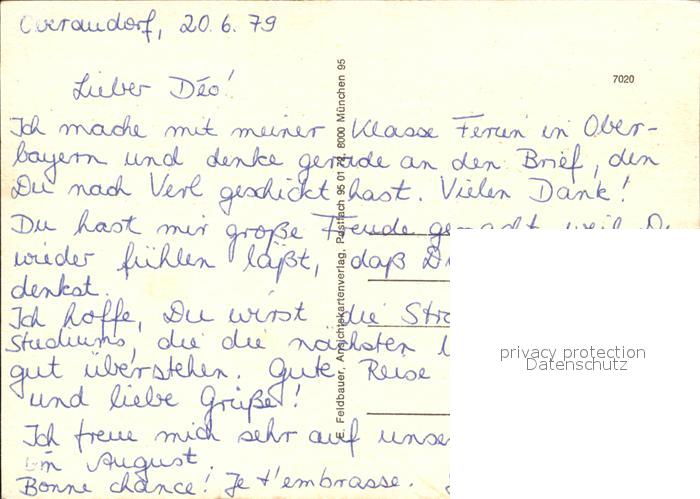 Oberaudorf, 20.6.79
Lieber Déo!
7020
Ich mache mit meiner Klasse Ferien in Ober-
bayern und denke gerade an den Brief, den
Du nach Verl geschickt hast. Vielen Dank!
Du hast mir große Freude gemacht, weil Du
wieder fühlen läßt, daß
denkst.
Ich hoffe, Du wirst die
Studiums, die die nächsten
gut überstehen. Gute Reise
und liebe Grüße!
Ich freue mich sehr auf
im August.
Bonne chance! Je t'embrasse.
E. Feldbauer, Ansichtskartenverlag, Postfach 95 01 72, 8000 München 95
privacy protection
Datenschutz